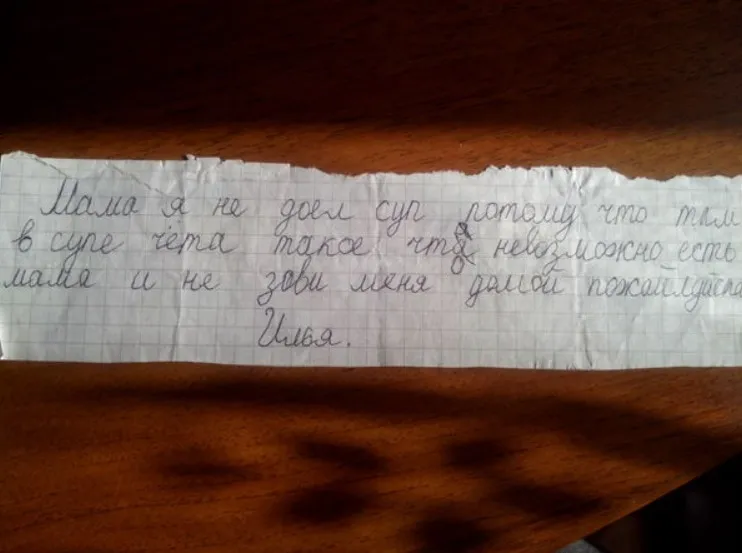 Мама я не доел суп потому что там
в супе чёта такое что невозможно есть
мама и не зови меня домой пожайлдайста
Илья.